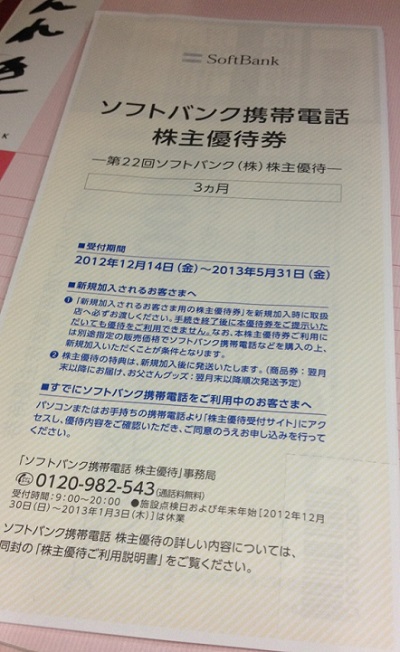 んれき
K
SoftBank
ソフトバンク携帯電話
株主優待券
―第22回ソフトバンク(株)株主優待―
3ヵ月
■受付期間
2012年12月14日(金)～2013年5月31日(金)
■新規加入されるお客さまへ
❶「新規加入されるお客さま用の株主優待券」を新規加入時に取扱
店へ必ずお渡しください。手続き終了後に本優待券をご提示いた
だいても優待をご利用できません。なお、本株主優待券ご利用に
は別途指定の販売価格でソフトバンク携帯電話などを購入の上、
新規加入いただくことが条件となります。
❷株主優待の特典は、新規加入後に発送いたします。(商品券：翌月
末以降にお届け、お父さんグッズ：翌月末以降順次発送予定)
■すでにソフトバンク携帯電話をご利用中のお客さまへ
パソコンまたはお手持ちの携帯電話より「株主優待受付サイト」にアク
セスし、優待内容をご確認いただき、ご同意のうえお申し込みを行って
ください。
「ソフトバンク携帯電話 株主優待」事務局
0120-982-543(通話料無料)
受付時間：9:00～20:00 ●施設点検日および年末年始[2012年12月
30日(日)～2013年1月3日(木)]は休業
ソフトバンク携帯電話 株主優待の詳しい内容については、
同封の「株主優待ご利用説明書」をご覧ください。